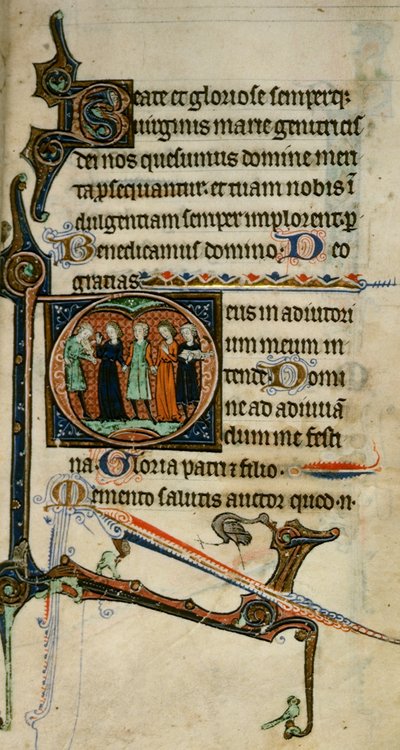 Beate et gloriose semperq;
virginis marie genitricis
dei nos quesumus domine meri
ta psequantur. et tuam nobis ī
dulgentiam semper implorent. p
Benedicamus domino. Deo
gratias
Deus in adiutori
um meum in
tende. Domi
ne ad adiuuā
dum me festi
na. Gloria patri ⁊ filio.
Memento salutis auctor quod .n.